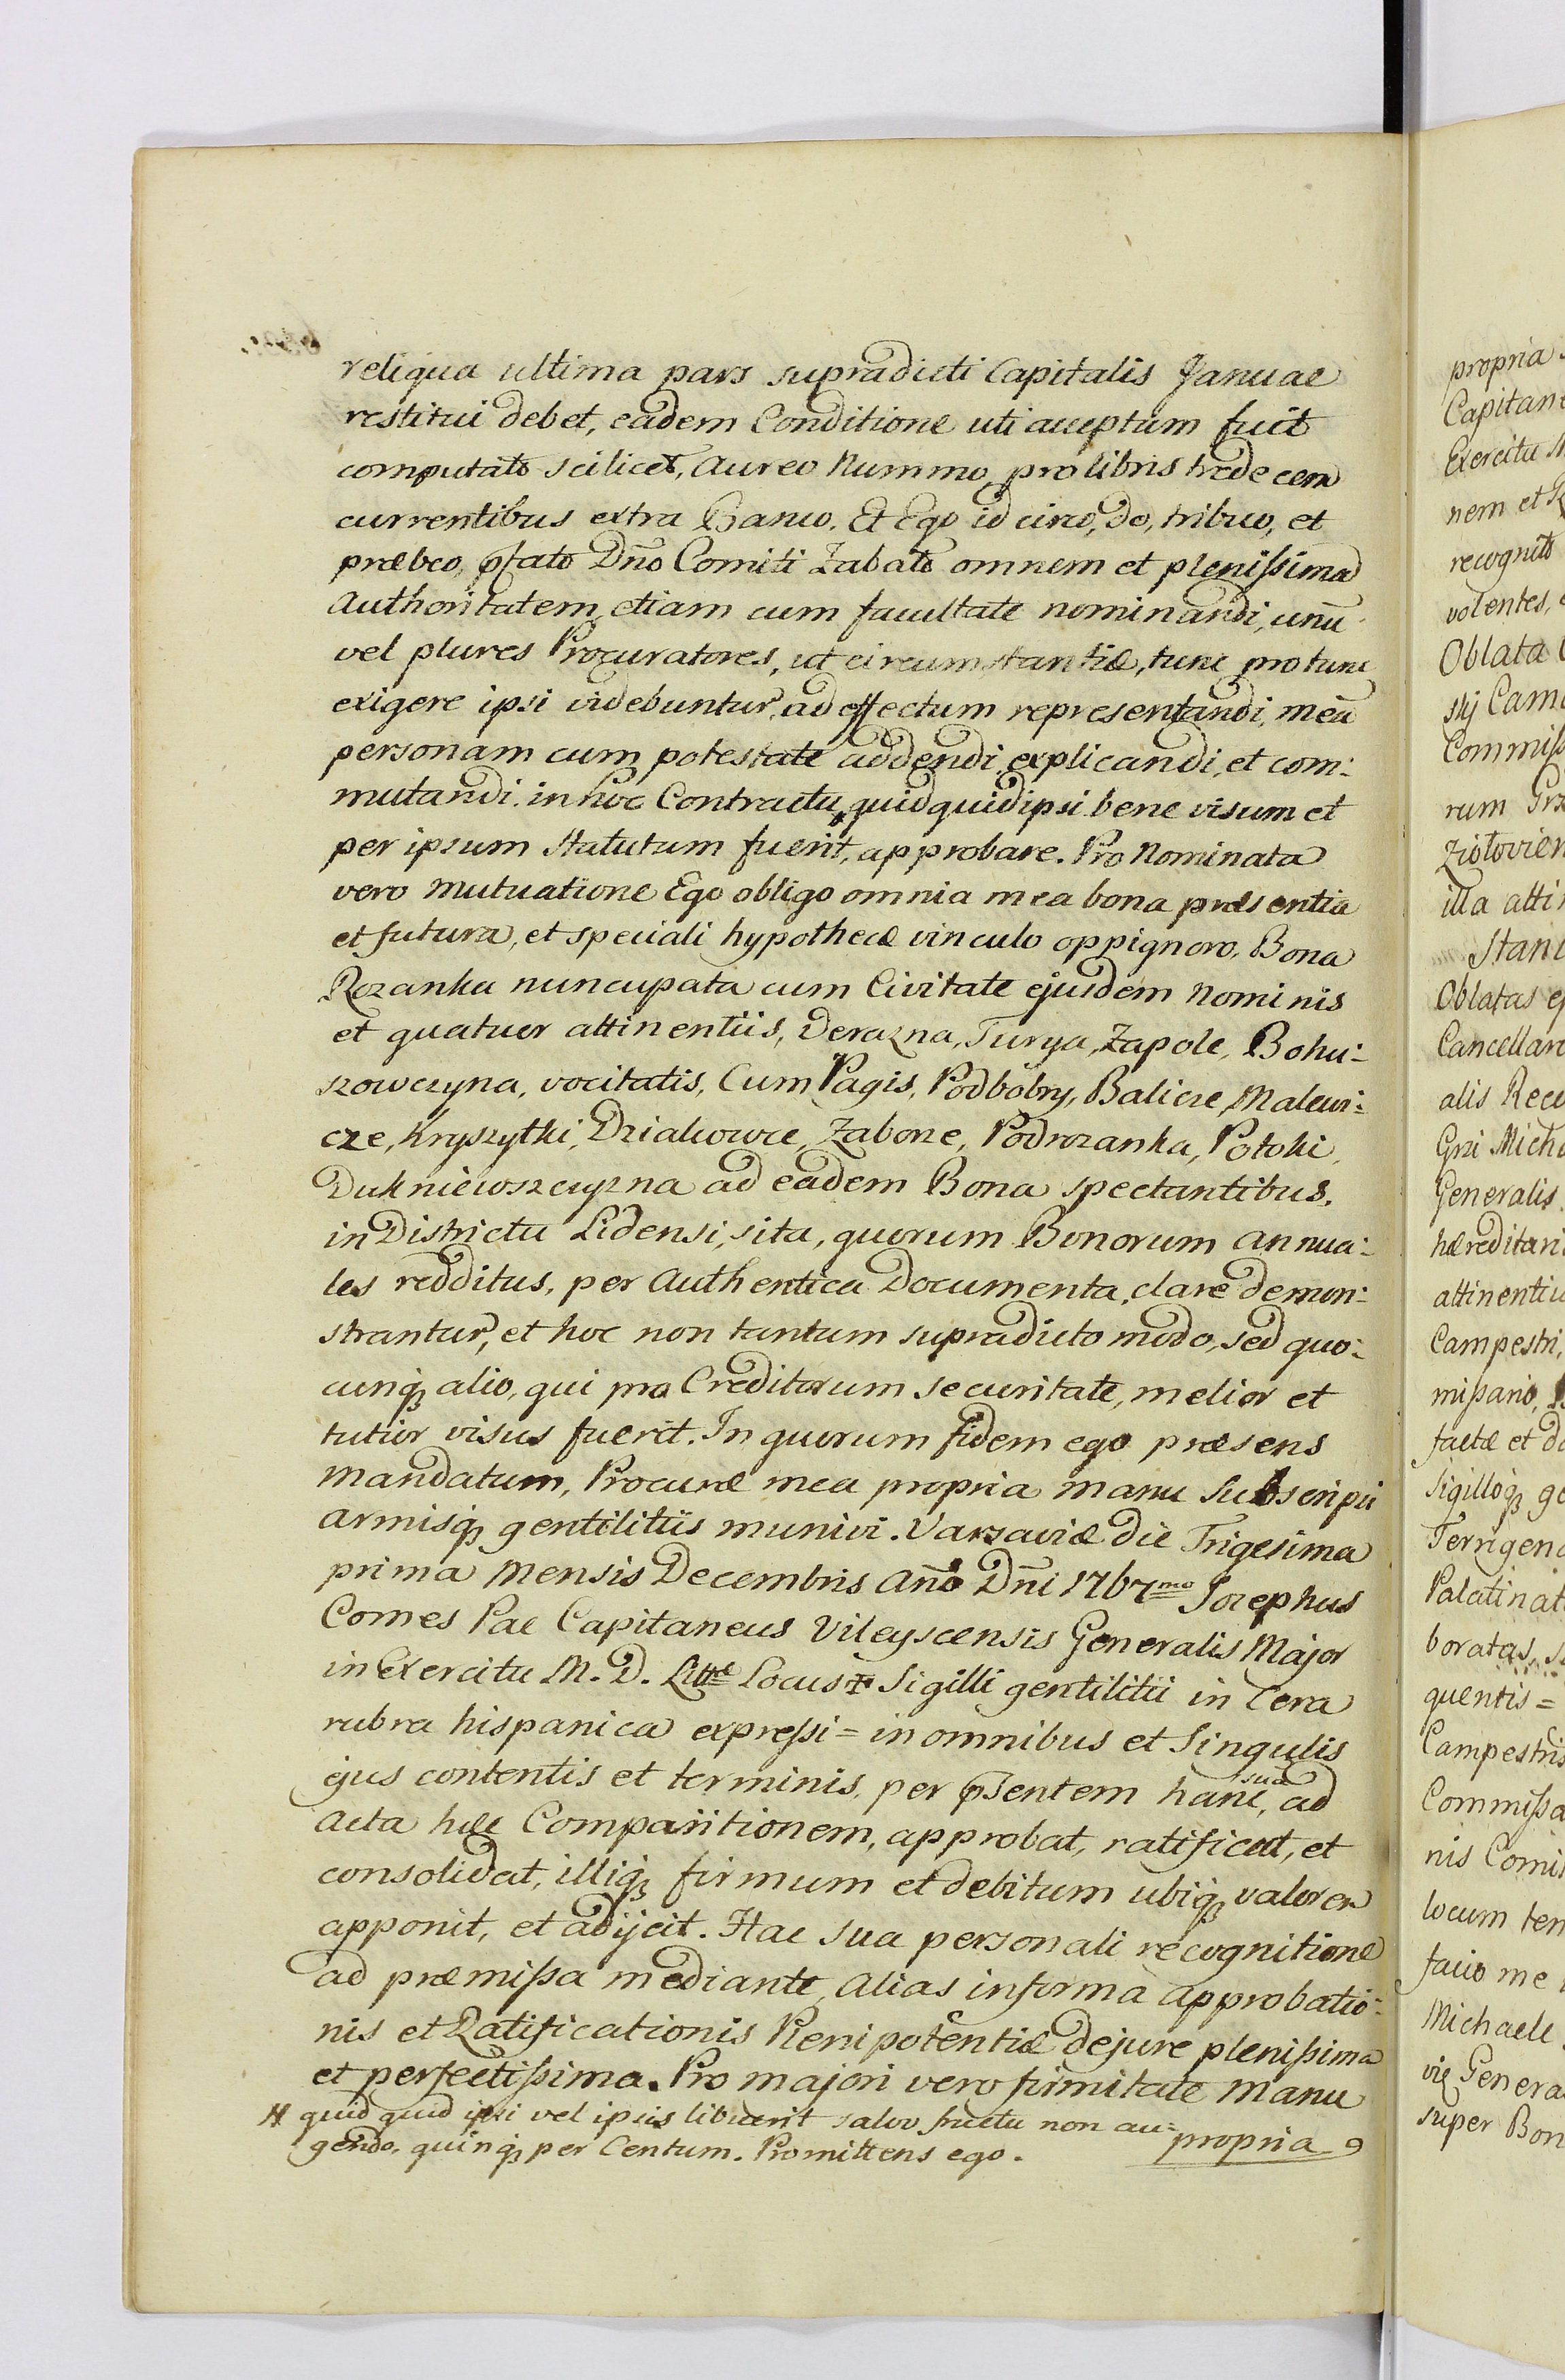 reliqua ultima pars supradicti Capitalis Januae
restitui debet, eadem Conditione uti acceptum fuit
computato scilicet, Aureo Nummo, pro libris tredecem
currentibus extra Banco. Et Ego id circo, do, tribuo, et
præbeo, pfato Dño Comiti Zabato omnem et plenissima
Authoritatem, etiam cum facultate nominandi, unū
vel plures Procuratores, ut circumstantiæ, tunc pro tunc
exigere ipsi videbuntur, ad effectum representandi, meā
personam cum potestate addendi, explicandi, et com:
mutandi. in hoc Contractu, quidquid ipsi bene visum et
per ipsum statutum fuerit, approbare. Pro Nominata
vero mutuatione Ego obligo omnia mea bona præsentia
et futura, et speciali hypothecæ vinculo oppignoro, Bona
Rozanka nuncupata cum Civitate ejusdem Nominis
et quatuor attinentiis, Derazna, Turya, Zapole, Bohu:
szowczyna, vocitatis, Cum Pagis, Podbobry, Balicze, Malewi:
cze, Kryszytki, Dziakowce, Zaborze, Podrozanka, Potoki,
Dukniewszczyzna ad eadem Bona spectantibus.
in Districtu Lidensi, sita, quorum Bonorum annua:
les redditus, per Authentica Documenta, clare demon:
strantur, et hoc non tantum supradicto modo, sed quo:
cunq3 alio, qui pro Creditorum securitate, melior et
tutior visus fuerit. In quorum fidem ego præsens
Mandatum, Procuræ mea propria manu Subscripsi
armisq3 gentilitiis munivi. Varsaviæ die Trigesima
prima Mensis Decembris Año Dñi 1767mo Josephus
Comes Pac Capitaneus Vileyscensis Generalis Major
in Exercitu M. D. Littæ Locus Sigilli gentilitii in Cera
rubra hispanica expressi = in omnibus et Singulis
ejus contentis et terminis, per pSentem hanc, suā ad
Acta hæc Comparitionem, approbat, ratificat, et
consolidat, illiq3 firmum et debitum ubiq3 valorem
apponit, et adijcit. Hac sua personali recognitione
ad præmissa mediante, Alias in forma Approbatio:
nis et Ratificationis Plenipotentiæ de jure plenissima
et perfectissima. Pro majori vero firmitate Manu
propria
# quid quid ipsi vel ipsis libuerit salvo fructu non au:
gendo, quinq3 per Centum. Promittens ego.
propria
Capitane
Exercitu M
nem et
recognito
volentes,
Oblata
skj Cam
Commiss
rum Grz
Ziolovien
illa atti
Stani
Oblatas
Cancellar
alis Rece
Gnri Mich
Generalis
hæreditari
attinentii
Campestri,
missario,
factæ et
Sigilloq3 ge
Terrigen
Palatinat
boratas, s
quentis =
Campestris
Commissa
nis Comi
locum ten
facio me
Michaele
viæ Genera
super Bon